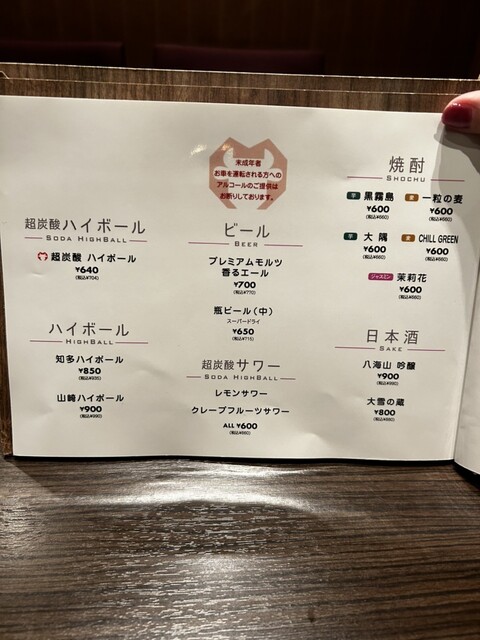 未成年者
お車を運転される方への
アルコールのご提供は
お断りしております。
超炭酸 ハイボール
SODA HIGHBALL
超炭酸 ハイボール
¥640
(税込¥704)
ハイボール
HIGHBALL
知多ハイボール
¥850
(税込¥935)
山崎ハイボール
¥900
(税込¥990)
ビール
BEER
プレミアムモルツ
香るエール
¥700
(税込¥770)
瓶ビール(中)
スーパードライ
¥650
(税込¥715)
超炭酸サワー
SODA HIGHBALL
レモンサワー
クレープフルーツサワー
ALL ¥600
(税込¥660)
焼酎
SHOCHU
芋 黒霧島
¥600
(税込¥660)
麦 一粒の麦
¥600
(税込¥660)
芋 大隅
¥600
(税込¥660)
麦 CHILL GREEN
¥600
(税込¥660)
ジャスミン 茉莉花
¥600
(税込¥660)
日本酒
SAKE
八海山 吟醸
¥900
(税込¥990)
大雪の蔵
¥800
(税込¥880)